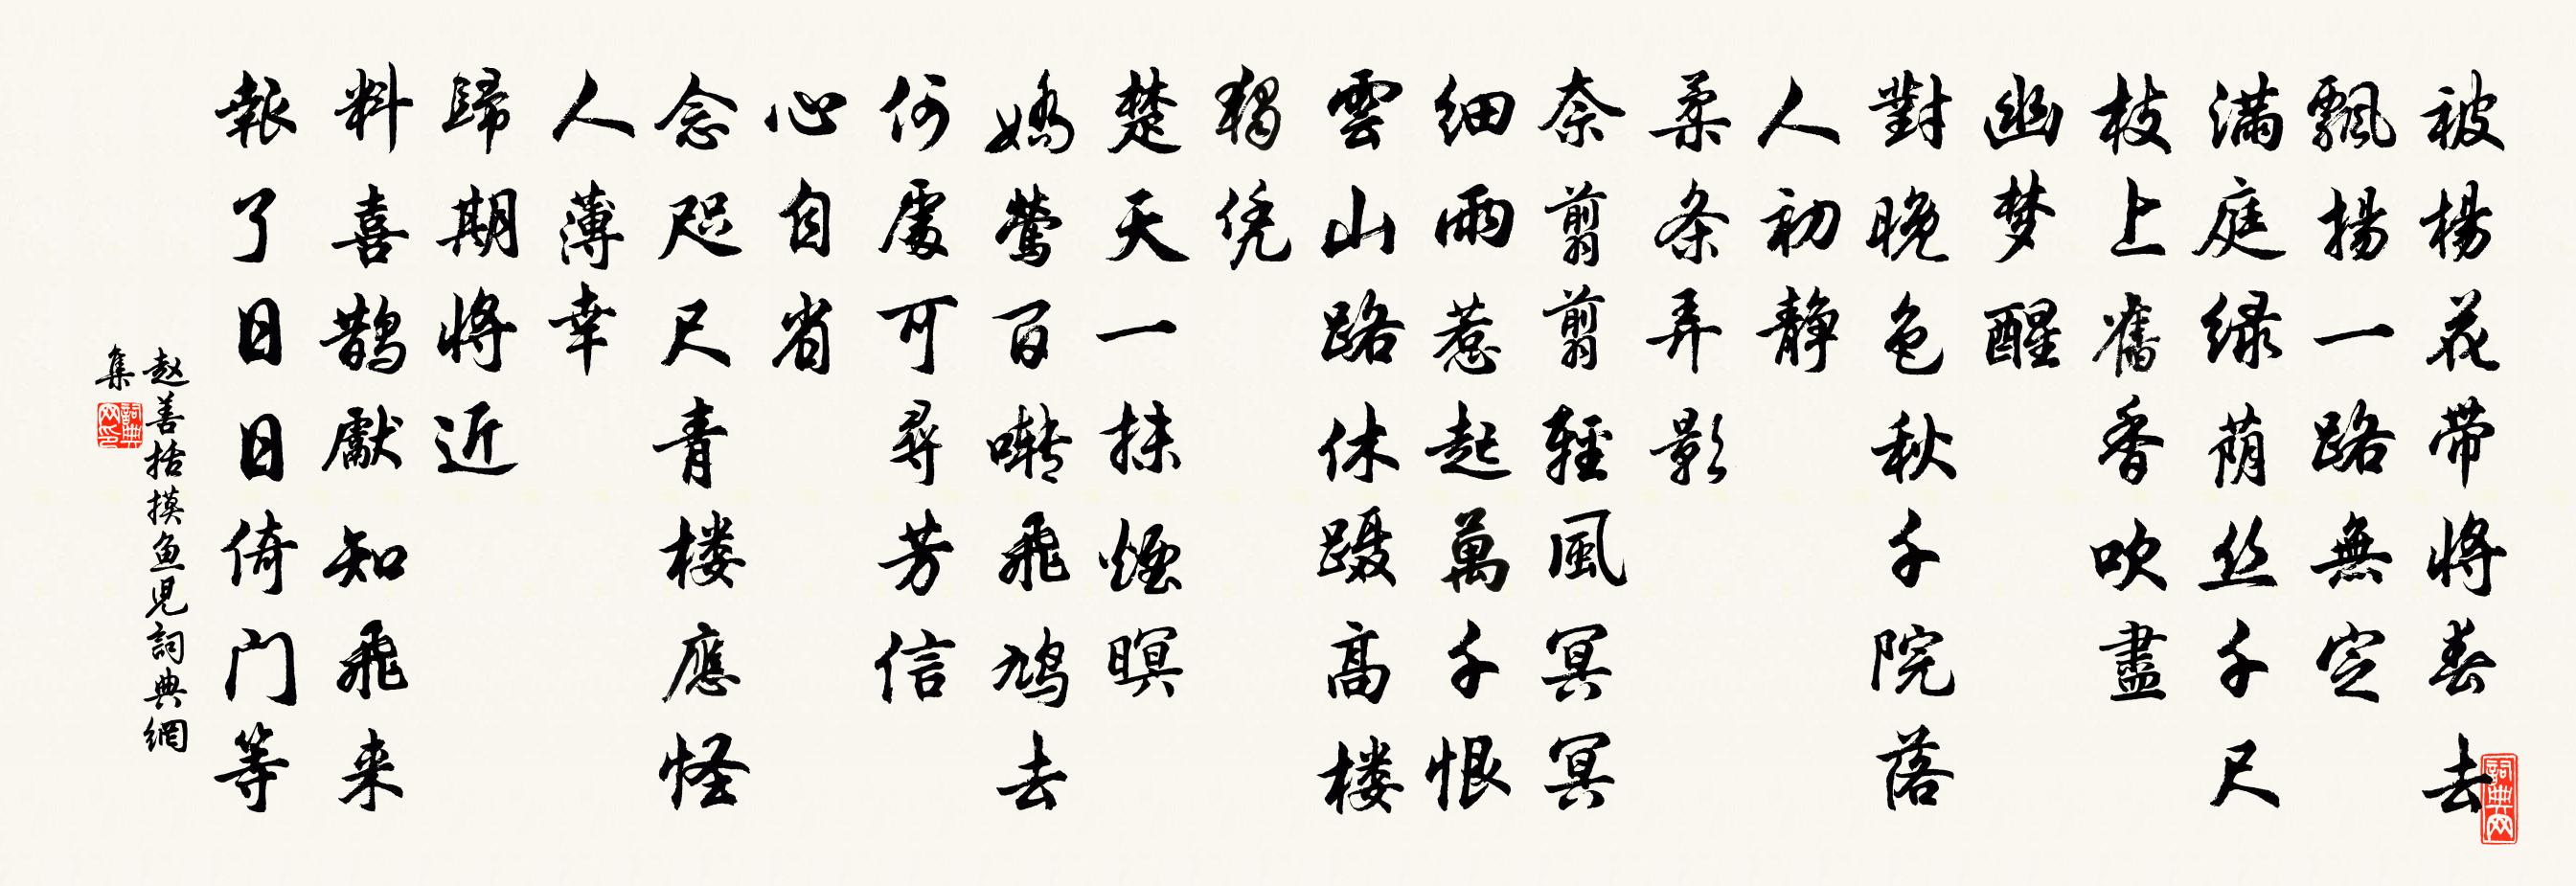 被楊花带將春去
飄揚一路無定
满庭绿荫丝千尺
枝上舊香吹盡
幽梦醒
對晚色秋千院落
人初静
柔条弄影
奈剪剪輕風冥冥
细雨惹起萬千恨
雲山路休蹑高楼
独凭
楚天一抹煙暝
嬌莺百啭飛鸠去
何處可尋芳信
心自省
念咫尺青楼應怪
人薄幸
歸期將近
料喜鹊獻知飛来
報了日日倚门等
赵善括摸鱼兒詞典網
集
詞典网印
詞典网